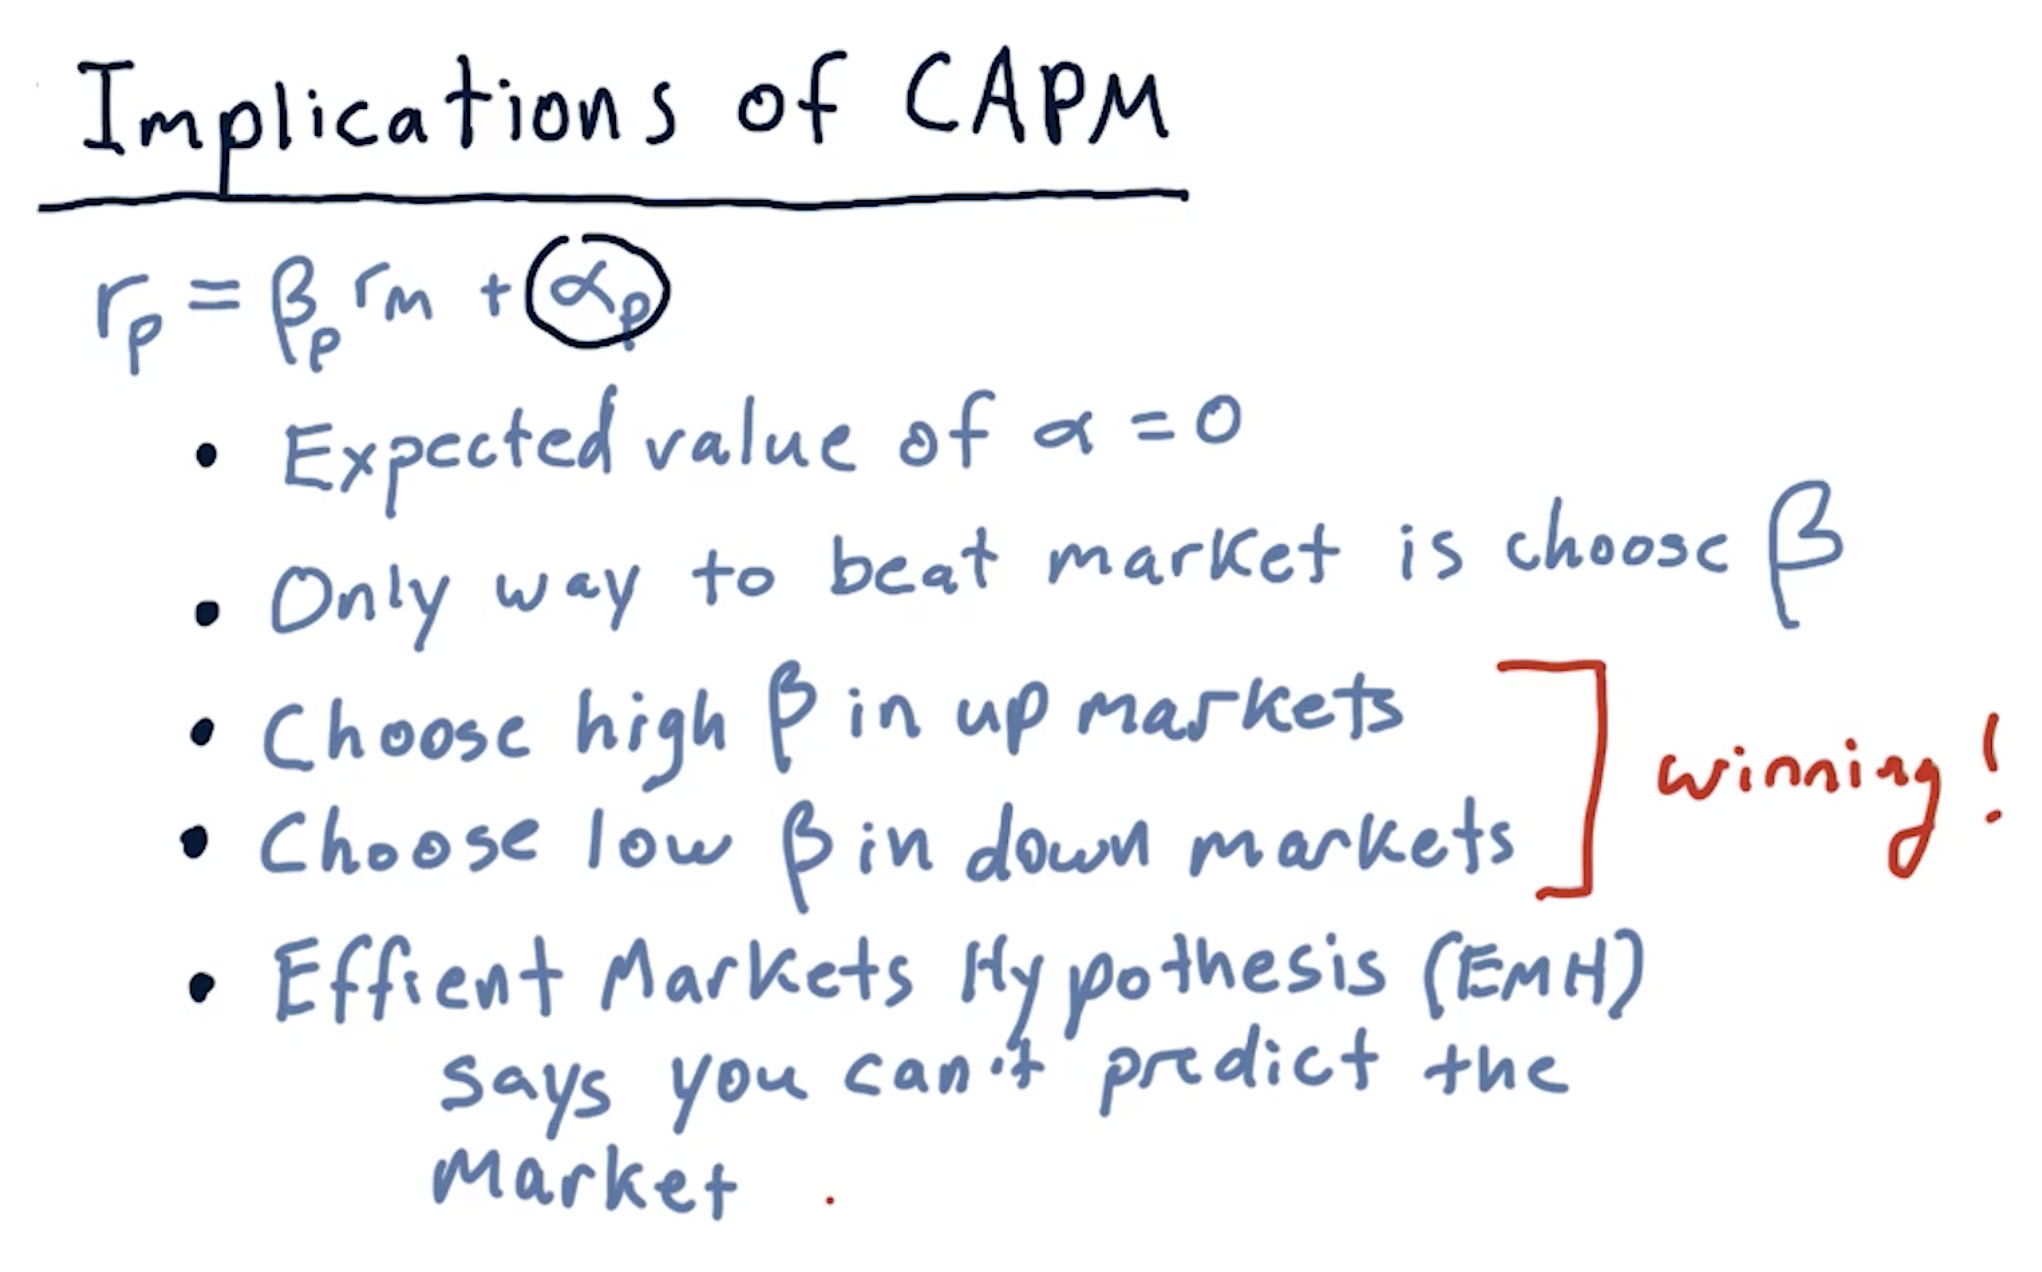 Implications of CAPM
rₚ = βₚ rₘ + αₚ
• Expected value of α = 0
• Only way to beat market is choose β
• Choose high β in up markets
• Choose low β in down markets
winning!
• Effient Markets Hypothesis (EMH)
says you can't predict the
Market